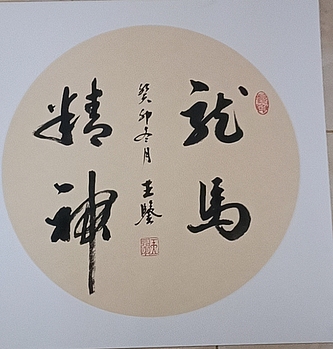 龍馬
精神
癸卯冬月 王